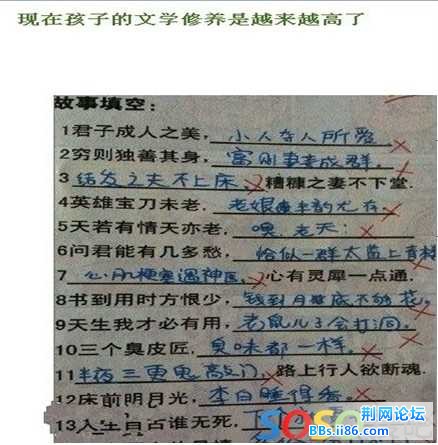 现在孩子的文学修养是越来越高了
故事填空：
1君子成人之美，小人夺人所爱
2穷则独善其身，富则妻妾成群。
3结发之夫不上床，糟糠之妻不下堂.
4英雄宝刀未老.老娘半韵尤存.
5天若有情天亦老，嘿.老天
6问君能有几多愁，恰似一群太监上青楼
7心肌梗塞遇神医，心有灵犀一点通.
8书到用时方恨少，钱到月底不够花。
9天生我才必有用，老鼠儿子会打洞。
10三个臭皮匠，臭味都一样。
11半夜三更鬼敲门，路上行人欲断魂.
12床前明月光，李白睡得香。
13人生自古谁无死，
荆网论坛
BBs.ii86.com